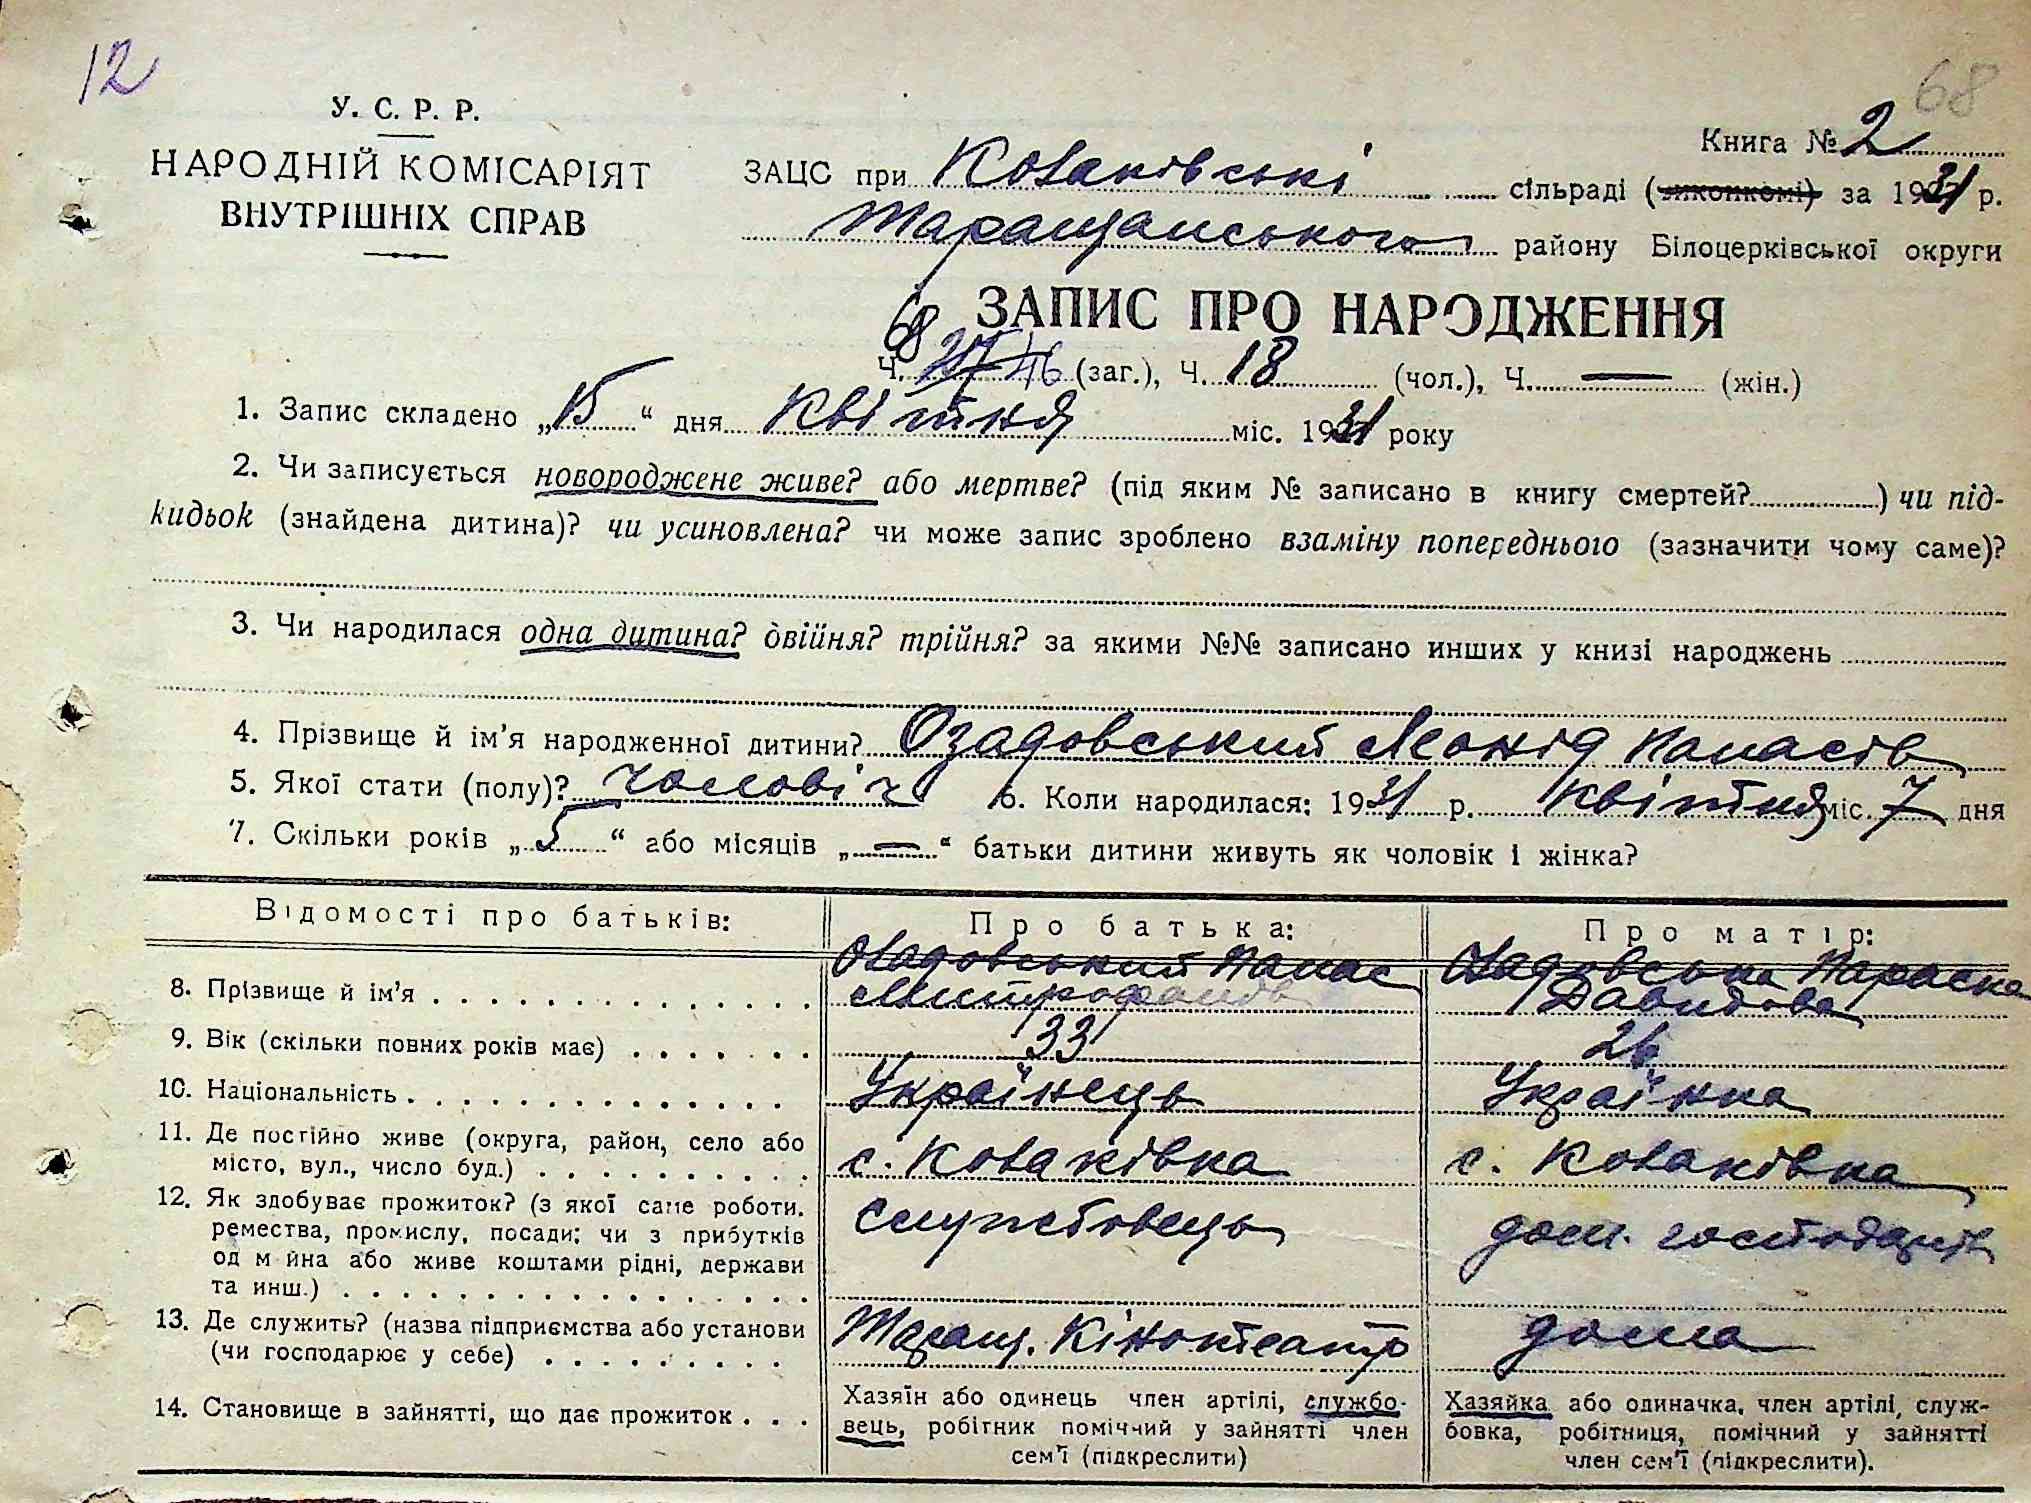 12
68
У. С. Р. Р.
НАРОДНІЙ КОМІСАРІЯТ
ВНУТРІШНІХ СПРАВ
Книга № 2
ЗАЦС при Козаківські сільраді (виконкомі) за 1931 р.
Таращанського району Білоцерківської округи
ЗАПИС ПРО НАРОДЖЕННЯ
68
Ч. 27 46 (заг.), Ч. 18 (чол.), Ч. — (жін.)
1. Запис складено „15“ дня Квітня міс. 1931 року
2. Чи записується новороджене живе? або мертве? (під яким № записано в книгу смертей?) чи під-
кидьок (знайдена дитина)? чи усиновлена? чи може запис зроблено взаміну попереднього (зазначити чому саме)?
3. Чи народилася одна дитина? двійня? трійня? за якими №№ записано инших у книзі народжень
4. Прізвище й ім'я народженної дитини? Озадовський Леонід Панасів
5. Якої стати (полу)? чоловіч 6. Коли народилася: 1931 р. Квітня міс. 7 дня
7. Скільки років „5“ або місяців „—“ батьки дитини живуть як чоловік і жінка?
Відомості про батьків: Про батька: Про матір:
8. Прізвище й ім'я . . . . . . . . . . . . . . Озадовський Панас Озадовська Параска
Митрофанов Давидова
9. Вік (скільки повних років має) . . . . . . . 33 26
10. Національність . . . . . . . . . . . . . . Українець Українка
11. Де постійно живе (округа, район, село або
місто, вул., число буд.) . . . . . . . . . . с. Козаківка с. Козаківка
12. Як здобуває прожиток? (з якої саме роботи.
ремества, промислу, посади; чи з прибутків
од м йна або живе коштами рідні, держави
та инш.) . . . . . . . . . . . . . . . . . . службовець дом. господарка
13. Де служить? (назва підприємства або установи
(чи господарює у себе) . . . . . . . . . . Таращ. Кінотеатр дома
14. Становище в зайнятті, що дає прожиток . . .
Хазяїн або одинець член артілі, службо-
вець, робітник помічний у зайнятті член
сем'ї (підкреслити)
Хазяйка або одиначка, член артілі, служ-
бовка, робітниця, помічний у зайнятті
член сем'ї (підкреслити).